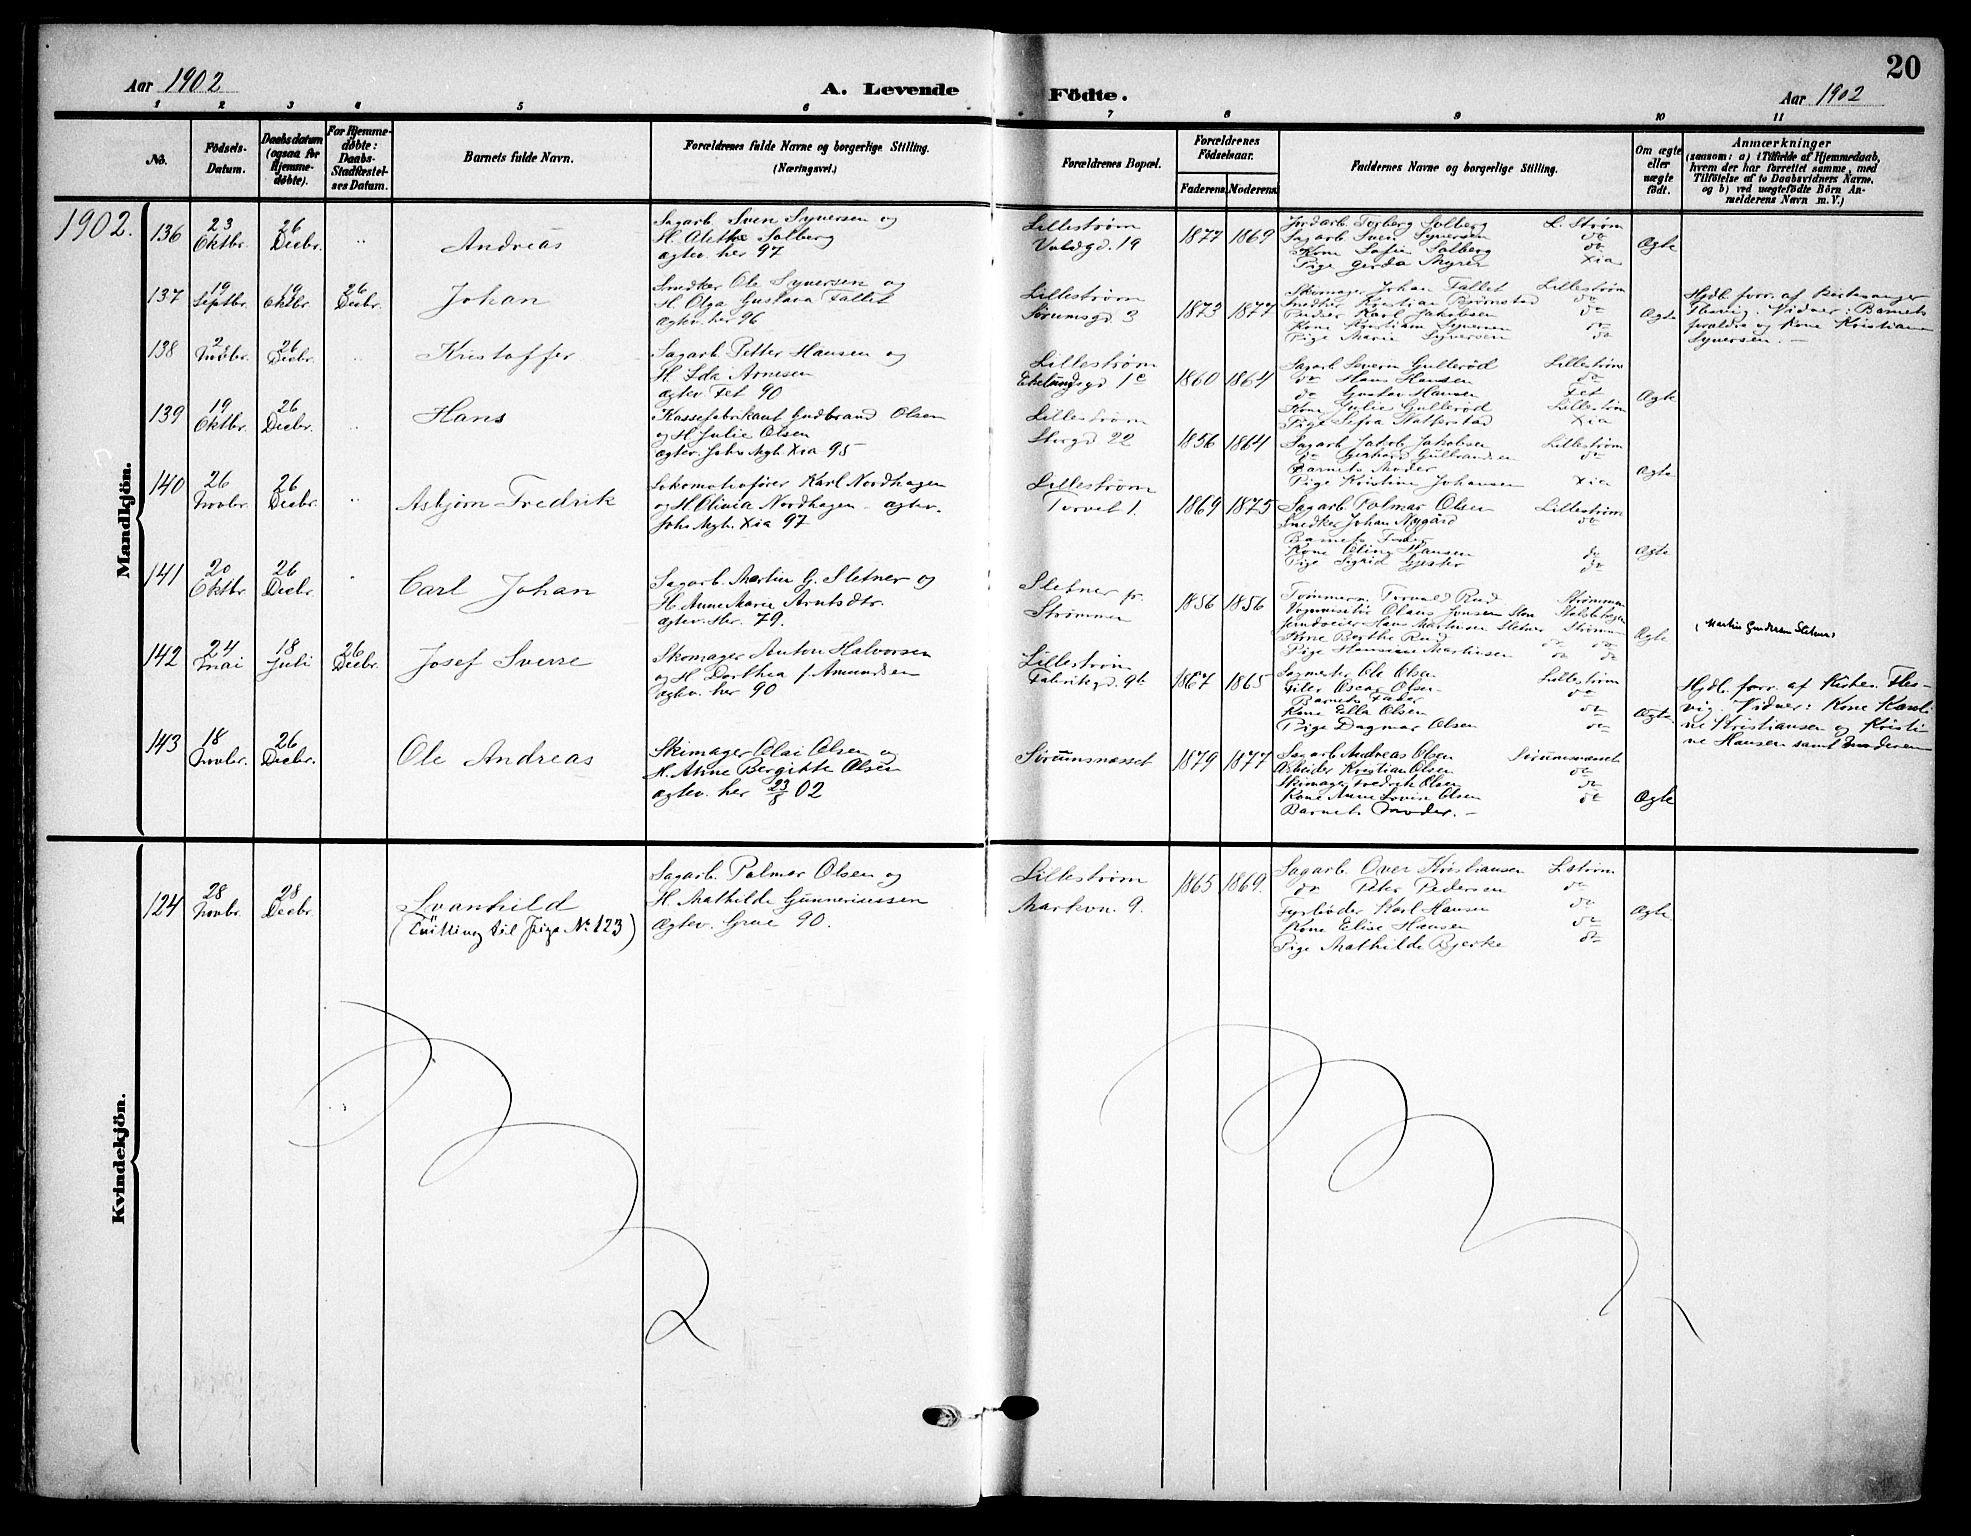 20
Aar 1902
A. Levende Födte.
Aar 1902
1 2 3 4 5 6 7 8 9 10 11
No.
Födsels-
Datum.
Daabsdatum
(ogsaa for
Hjemme-
döbte).
For Hjemme-
döbte:
Daabs-
Stadfæstel-
ses Datum.
Barnets fulde Navn.
Forældrenes fulde Navne og borgerlige Stilling.
(Næringsvei.)
Forældrenes Bopæl.
Forældrenes
Födselsaar.
Faderens. Moderens.
Faddernes Navne og borgerlige Stilling.
Om ægte
eller
uægte
födt.
Anmærkninger
(saasom: a) i Tilfælde af Hjemmedaab,
hvem der har forrettet samme, med
Tilföielse af to Daabsvidners Navne,
og b) ved uægtefödte Börn An-
melderens Navn m. V.)
Mandkjön.
1902.
136
23
Oktbr.
26
Decbr.
"
Andreas
Sagarb. Sven Syversen og
H. Alethe Solberg
ægtev. her 97
Lillestrøm
Voldgd. 19
1877 1869
Jordarb. Torberg Solberg L. Strøm
Sagarb. Sven Syversen do
Kone Sofie Solberg do
Pige Gerda Myrer Xia
Ægte
137
19
Septbr.
19
Oktbr.
26
Decbr.
Johan
Snedker Ole Syversen og
H. Olga Gustava Fallet
ægtev. her 96
Lillestrøm
Sørumsgd. 3
1873 1877
Skomager Johan Fallet Lillestrøm
Snedker Kristian Bjørnstad do
Karl Jakobsen do
Kone Kristiane Syversen do
Pige Marie Syversen do
Ægte
Hjdb. forr. af Kirkesanger
Flesvig. Vidner: Barnets
forældre og Kone Kristiane
Syversen. —
138
2
Novbr.
26
Decbr.
"
Kristoffer
Sagarb. Petter Hansen og
H. Ida Arnesen
ægtev. Fet 90
Lillestrøm
1860 1864
Sagarb. Severin Gullerød Lillestrøm
do Hans Hansen do
do Gustav Hansen Fet
Kone Julie Gullerød Lillestrøm
Xia
Ægte
139
19
Oktbr.
26
Decbr.
"
Hans
Kassefabrikant Gudbrand Olsen
og H. Julie Olsen
ægtev. Johs Mgh. Xia 95
Lillestrøm
Storgd 22
1856 1864
Sagarb. Jakob Jakobsen Lillestrøm
do Gerhard Gulbrandsen do
Barnets Moder
Pige Kristine Johansen Xia
Ægte
140
26
Novbr.
26
Decbr.
"
Asbjørn Fredrik
Lokomotivfører Karl Nordhagen
og H. Olivia Nordhagen - ægtev.
Johs Mgh. Xia 97
Lillestrøm
Torvet 1.
1869 1875
Sagarb. Palmar Olsen Lillestrøm
Snedker Johan Nygård do
Barnets Fader
Kone Oline Hansen do
Pige Sigrid Gjester do
Ægte
141
20
Oktbr.
26
Decbr.
"
Carl Johan
Sagarb. Martin G. Sletner og
H. Anne Marie Arntsdtr.
ægtev. her. 79.
Sletner pr.
Strømmen
1856 1856
Tømmerm. Torvald Rud Strømmen
Vognvisitør Olaus Jensen
Jerndreier Hans Martinsen Sletner Strømm
Kone Berthe Rud do do
Pige Hansine Martinsen do do
Ægte
(Martin Gundersen Sletner)
142
24
Mai
18
Juli
26
Decbr.
Josef Sverre
Skomager Anton Halvorsen
og H Dorthea f. Amundsen
ægtev. her 90
Lillestrøm
Fabrikgd. 9b
1867 1865
Sagmester Ole Olsen Lillestrøm
Filer Oscar Olsen do
Barnets Fader
Kone Ella Olsen do
Pige Dagmar Olsen do
Ægte
Hjdb. forr. af Kirkes. Fles-
vig. Vidner: Kone Karoli-
ne Kristiansen og Kristi-
ne Hansen samt Moderen
143
18
Novbr.
26
Decbr.
Ole Andreas
Skimager Olai Olsen og
H. Anne Bergitte Olsen
ægtev. her 23/8 02
Sørumsnæsset
1879 1877
Sagarb. Andreas Olsen Sørumsnæsset
Arbeider Kristian Olsen do
Skimager Fredrik Olsen do
Kone Anne Lovise Olsen do
Barnets Moder. —
Ægte
Kvindekjön.
124
28
Novbr.
28
Decbr.
Svanhild
(Tvilling til Pige No 123)
Sagarb. Palmer Olsen og
H. Mathilde Gunneriussen
ægtev. Grue 90.
Lillestrøm
Markvn. 9.
1865 1869.
Sagarb. Over Kristiansen Lstrøm
do Peter Pedersen do
Fyrbøder Karl Hansen do
Kone Elise Hansen do
Pige Mathilde Bjerke do
Ægte